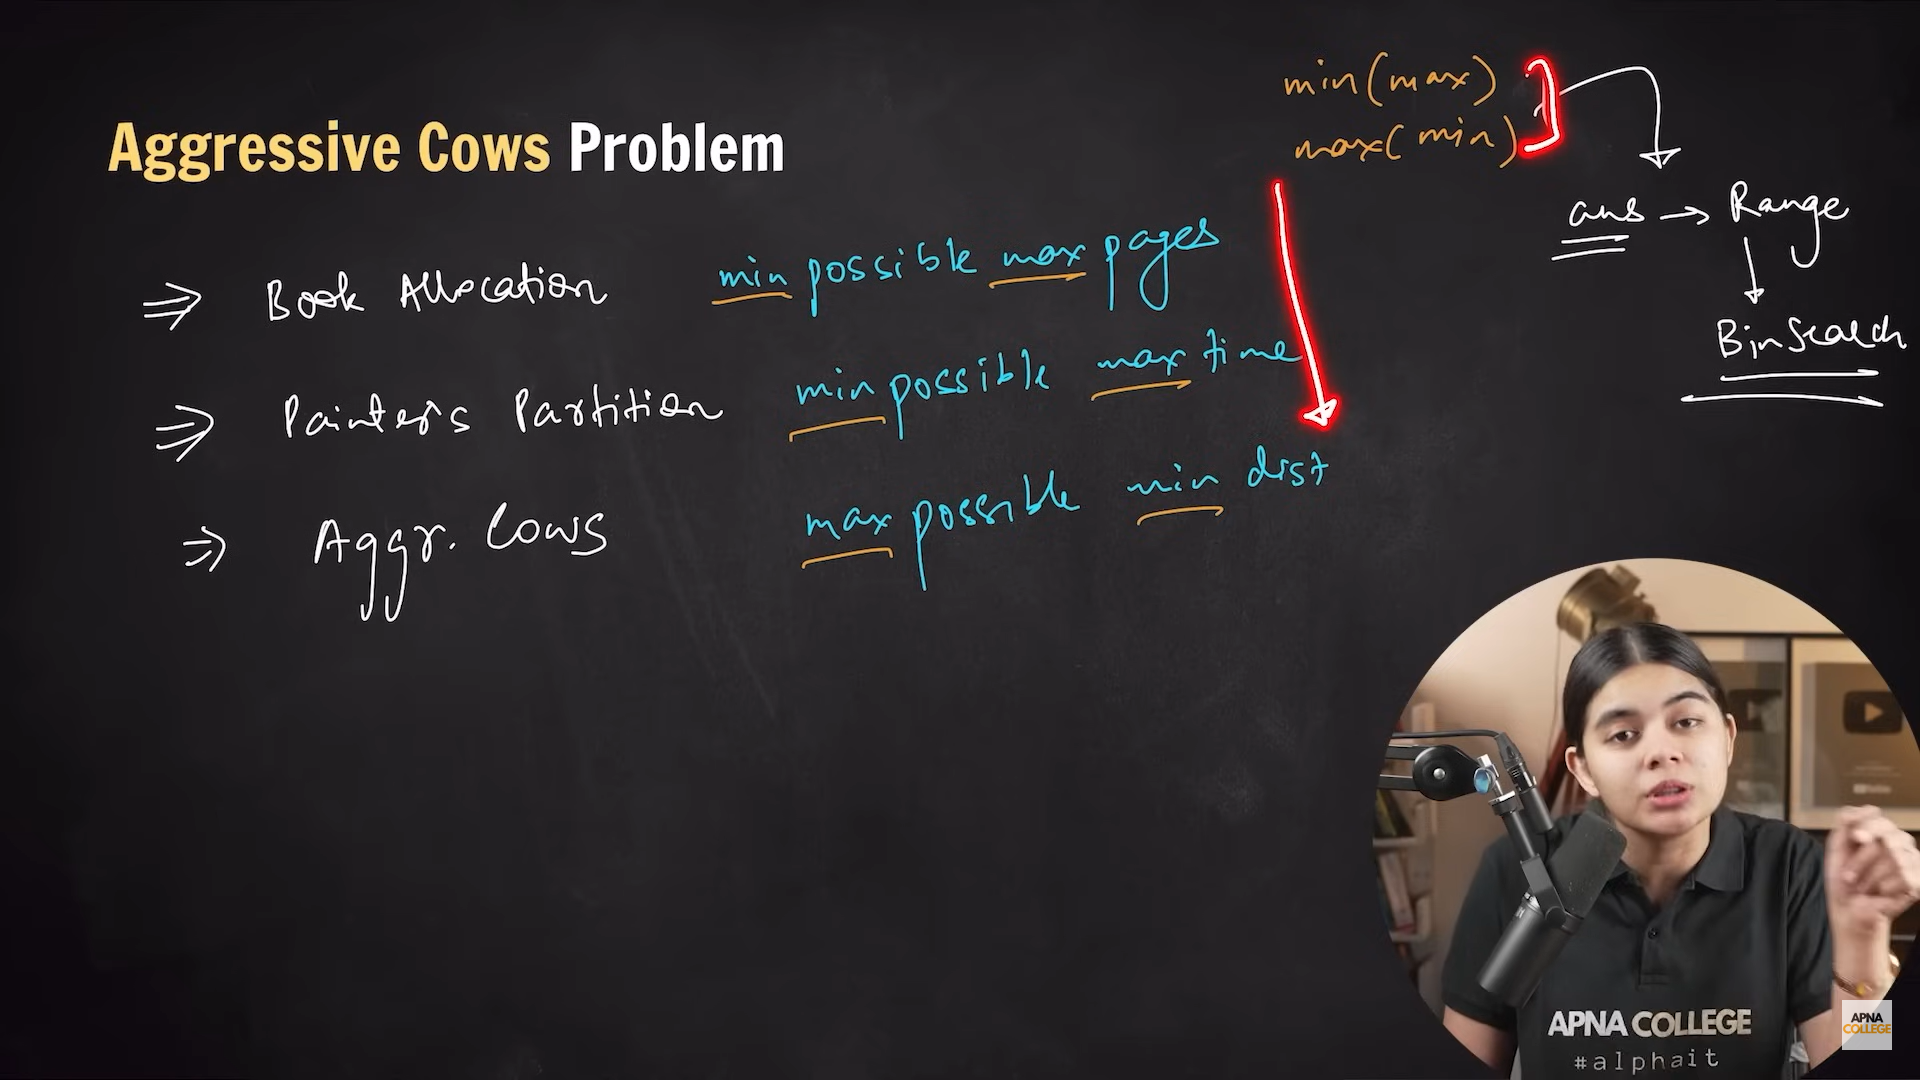 Aggressive Cows Problem
min(max)
max(min)
ans → Range
BinSearch
⇒ Book Allocation min possible max pages
⇒ Painter's Partition min possible max time
⇒ Aggr. Cows max possible min dist
APNA COLLEGE
#alphait
APNA
COLLEGE